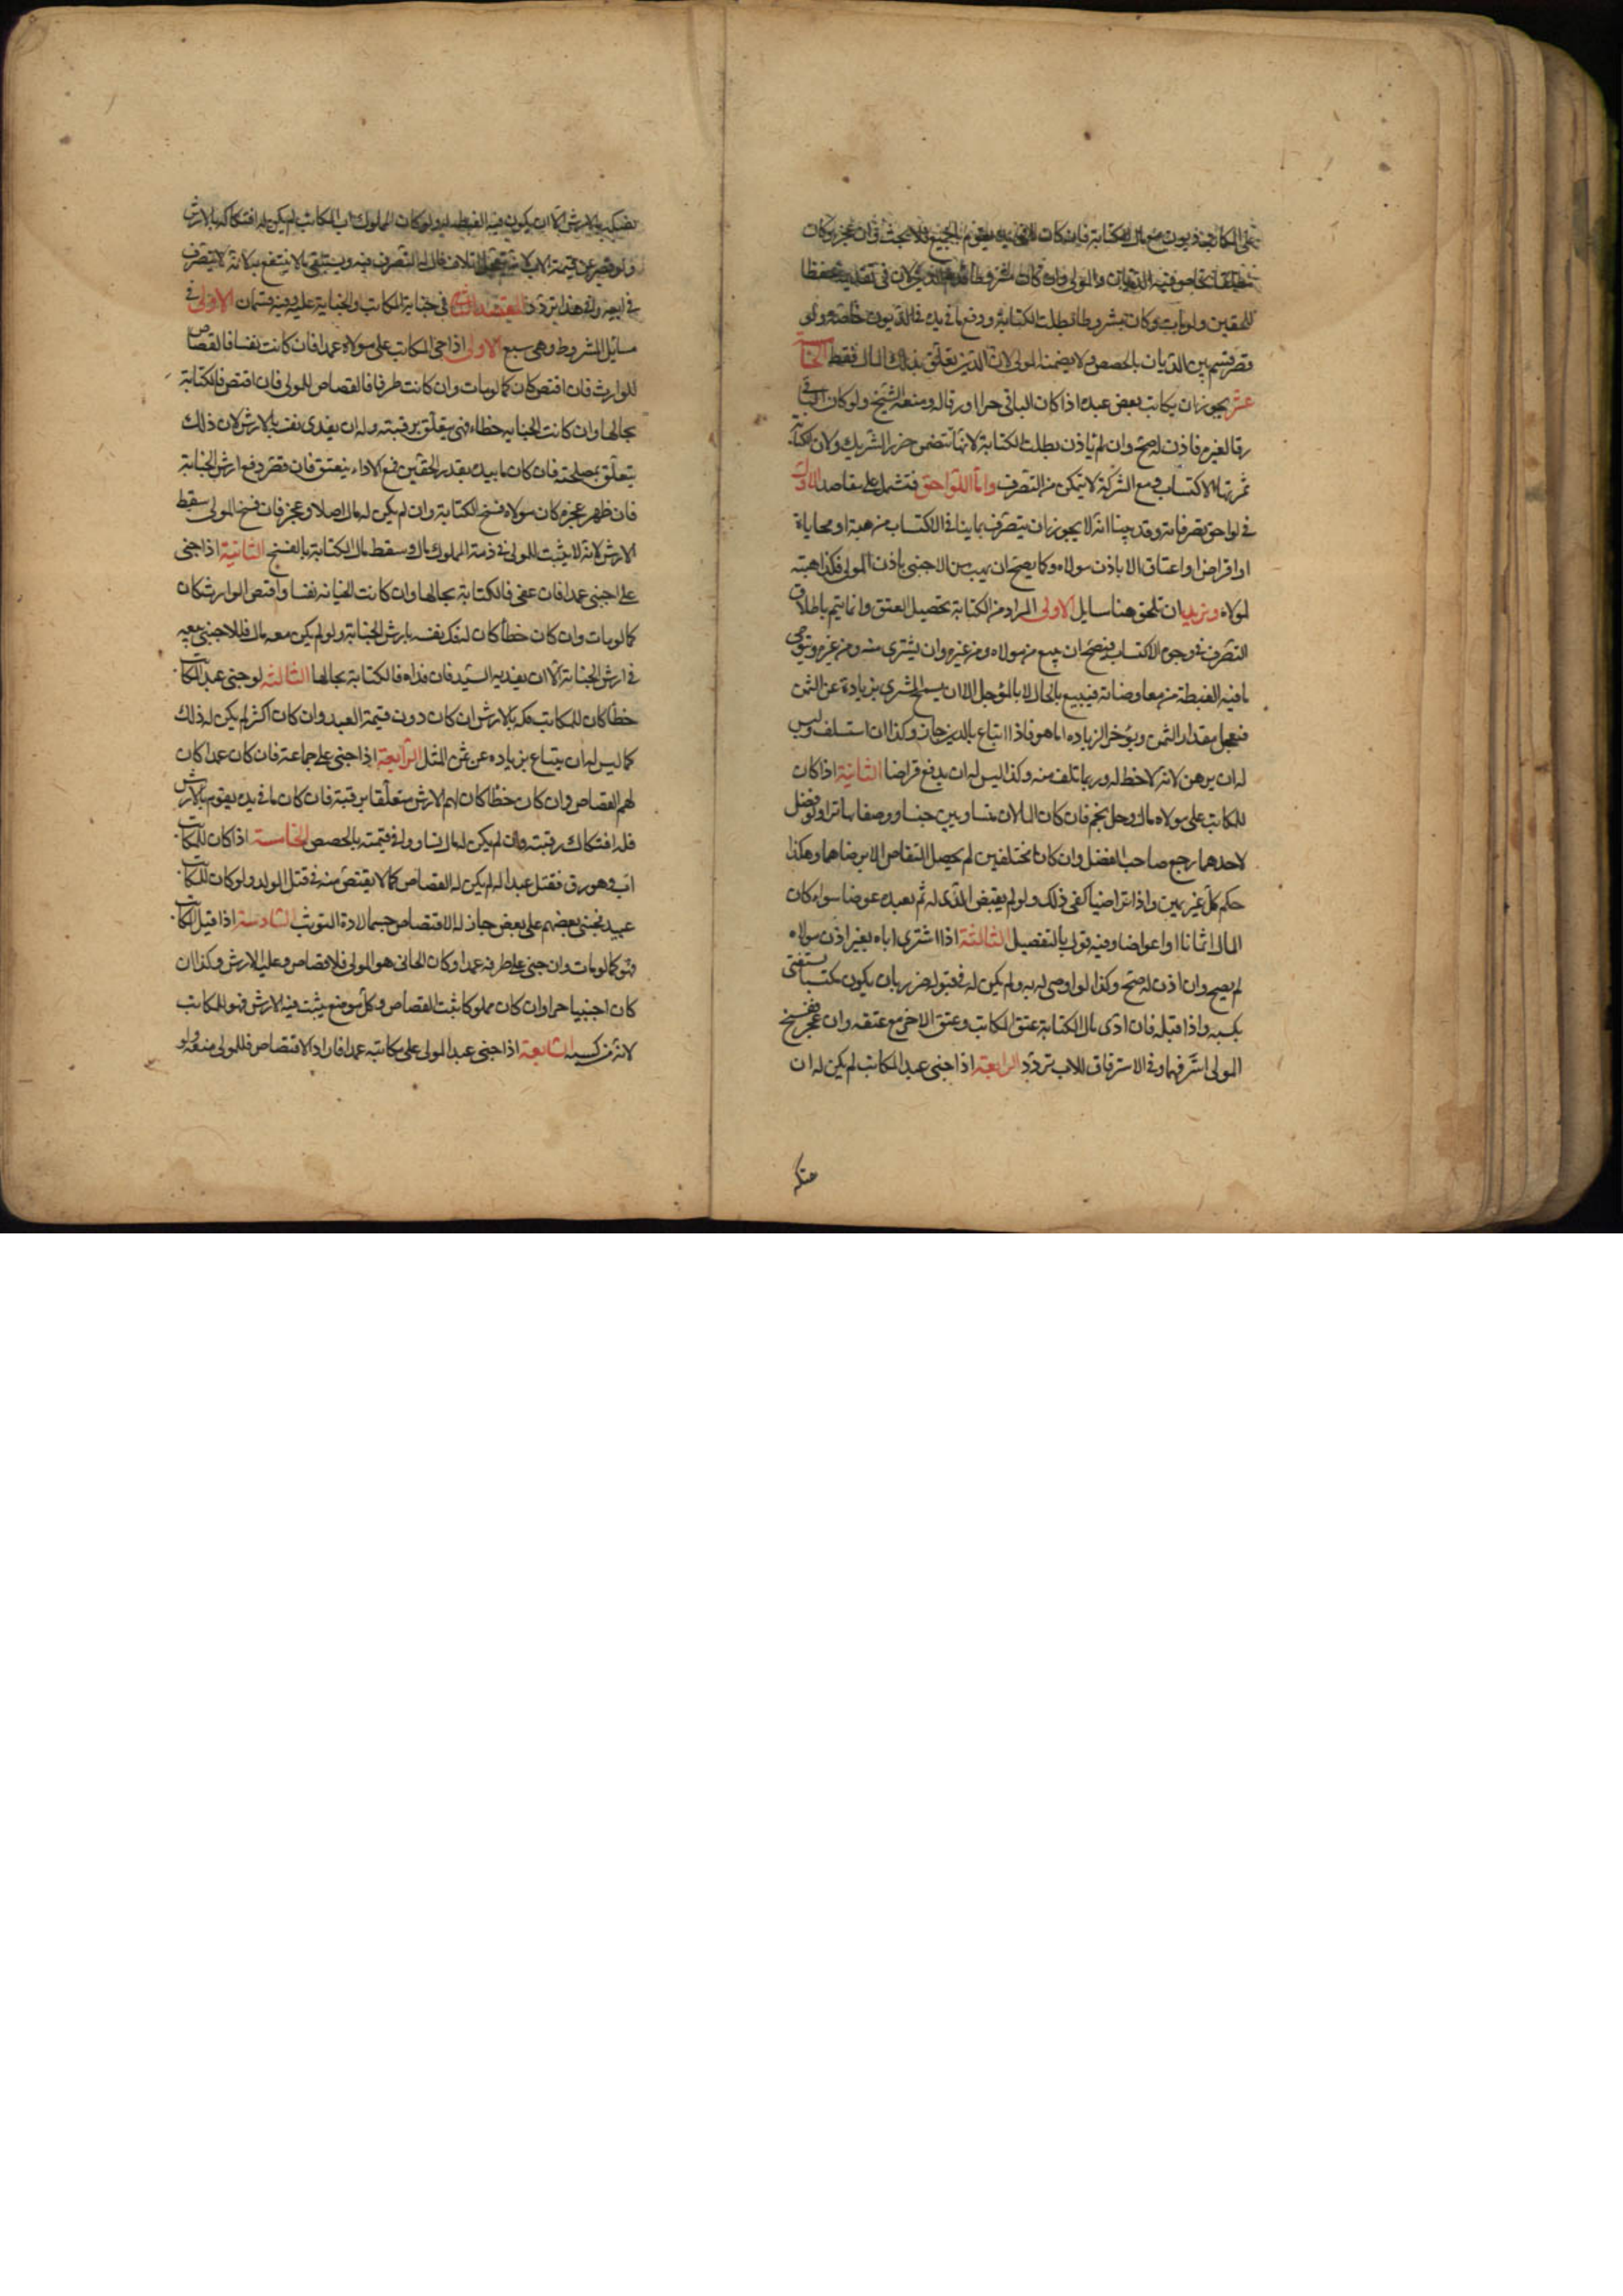 على المكاتب ديون مع مال الكتابة فان كان ما فى يده يقوم بالجميع فلا بحث وان عجز وكان
مطلقا تحاص فيه الديان والمولى وان كان مشروطا قدم الدين لان فى تقديمه حفظا
للحقين ولو مات وكان مشروطا بطلت الكتابة ودفع ما فى يده فى الديون خاصة ولو
قصر قسم بين الديان بالحصص ولا يضمنه المولى لان الدين تعلق بذلك المال فقط الخامسة
عشر يجوز ان يكاتب بعض عبده اذا كان الباقى حرا او رقا له ومنعه الشيخ ولو كان الباقى
رقا لغيره فاذن له صح وان لم ياذن بطلت الكتابة لانها تتضمن ضرر الشريك ولان الكتابة
ثمرتها الاكتساب ومع الشركة لا يتمكن من التصرف واما اللواحق فتشمل على مقاصد الاول
فى لواحق تصرفاته وقد بينا انه لا يجوز ان يتصرف بما ينافى الاكتساب من هبة او محاباة
او اقراض او اعتاق الا باذن مولاه وكما يصح ان يهب من الاجنبى باذن المولى فكذا هبته
لمولاه ونريد ان نلحق هنا مسايل الاولى المراد من الكتابة تحصيل العتق وانما يتم باطلاق
التصرف فى وجوه الاكتساب فيصح ان يبيع من مولاه ومن غيره وان يشترى منه ومن غيره ويتوخى
ما فيه الغبطة من معاوضاته فيبيع بالحال لا بالمؤجل الا ان يسمح المشترى بزيادة عن الثمن
فيعجل مقدار الثمن ويؤخر الزيادة اما هو فاذا ابتاع بالدين جاز وكذا ان استسلف وليس
له ان يرهن لانه لا حظ له وربما تلف منه وكذا ليس له ان يدفع قراضا الثانية اذا كان
للمكاتب على مولاه مال وحل نجم فان كان المالان متساويين جنسا ووصفا تهاترا ولو فضل
لاحدهما رجع صاحب الفضل وان كانا مختلفين لم يحصل التقاص الا برضاهما وهكذا
حكم كل غريمين واذا تراضيا كفى ذلك ولو لم يقبض الذى له ثم يعيده عوضا سواء كان
المال اثمانا او اعواضا وفيه قول بالتفصيل الثالثة اذا اشترى اباه بغير اذن مولاه
لم يصح وان اذن له صح وكذا لو اوصى له به ولم يكن له فى قبوله ضرر بان يكون مكتسبا يستغنى
بكسبه واذا قبله فان ادى مال الكتابة عتق المكاتب وعتق الاخر مع عتقه وان عجز ففسخ
المولى استرقهما وفى الاسترقاق للاب تردد الرابعة اذا جنى عبد المكاتب لم يكن له ان
يفكه بالارش الا ان يكون فيه الغبطة له ولو كان المملوك اب المكاتب لم يكن له افتكاكه بالارش
ولو قصر عن قيمة الاب لانه يتعجل باتلاف مال له التصرف فيه ويستبقى ما لا ينتفع به لانه لا يتصرف
فى ابيه وفى هذا تردد المقصد الثانى فى جناية المكاتب والجناية عليه وفيه قسمان الاولى فى
مسايل المشروط وهى سبع الاولى اذا جنى المكاتب على مولاه عمدا فان كانت نفسا فالقصاص
للوارث فان اقتص كان كما لو مات وان كانت طرفا فالقصاص للمولى فان اقتص فالكتابة
بحالها وان كانت الجناية خطاء فهى يتعلق برقبته وله ان يفدى نفسه بالارش لان ذلك
يتعلق بمصلحته فان كان ما بيده بقدر الحقين فمع الاداء ينعتق فان قصر دفع ارش الجناية
فان ظهر عجزه كان لمولاه فسخ الكتابة وان لم يكن له مال اصلا وعجز فان فسخ المولى سقط
الارش لانه لا يثبت للمولى فى ذمة المملوك مال وسقط مال الكتابة بالفسخ الثانية اذا جنى
على اجنبى عمدا فان عفى فالكتابة بحالها وان كانت الجناية نفسا واقتص الوارث كان
كما لو مات وان كان خطأ كان له فك نفسه بارش الجناية ولو لم يكن معه مال فللاجنبى بيعه
فى ارش الجناية الا ان يفديه السيد فان فداه فالكتابة بحالها الثالثة لو جنى عبد المكاتب
خطأ كان للمكاتب فكه بالارش ان كان دون قيمة العبد وان كان اكثر لم يكن له ذلك
كما ليس له ان يبتاع بزياده عن ثمن المثل الرابعة اذا جنى على جماعة فان كان عمدا كان
لهم القصاص وان كان خطأ كان لهم الارش متعلقا برقبته فان كان ما فى يده يقوم بالارش
فله افتكاك رقبته وان لم يكن له مال تساووا فى قيمته بالحصص الخامسة اذا كان للمكاتب
اب وهو رق فقتل عبدا له لم يكن له القصاص كما لا يقتص منه فى قتل الولد ولو كان للمكاتب
عبيد فجنى بعضهم على بعض جاز له الاقتصاص حسما لمادة التوثب السادسة اذا قتل المكاتب
فهو كما لو مات وان جنى على طرفه عمدا وكان الجانى هو المولى فلا قصاص وعليه الارش وكذا ان
كان اجنبيا حرا وان كان مملوكا ثبت القصاص وكل موضع يثبت فيه الارش فهو للمكاتب
لانه من كسبه السابعة اذا جنى عبد المولى على مكاتبه عمدا فاراد الاقتصاص فللمولى منعه ولو